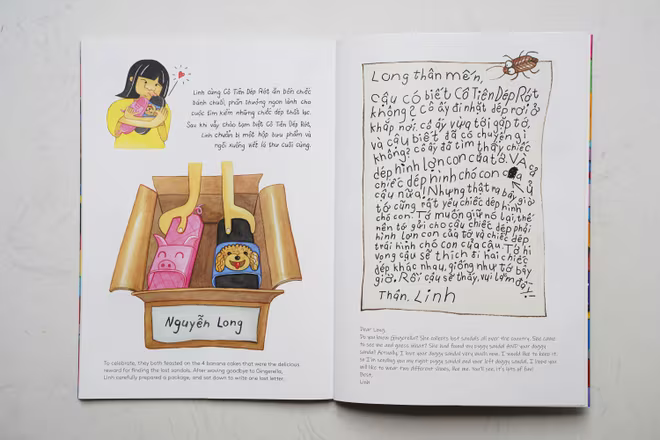 Linh cùng Cô Tiên Dép Rớt ăn bốn chiếc
bánh chuối, phần thưởng ngon lành cho
cuộc tìm kiếm những chiếc dép thất lạc.
Sau khi vẫy chào tạm biệt Cô Tiên Dép Rớt,
Linh chuẩn bị một hộp bưu phẩm và
ngồi xuống viết lá thư cuối cùng.
Nguyễn Long
To celebrate, they both feasted on the 4 banana cakes that were the delicious
reward for finding the lost sandals. After waving goodbye to Gingerella,
Linh carefully prepared a package, and sat down to write one last letter.
Long thân mến,
Cậu có biết Cô Tiên Dép Rớt
không? Cô ấy đi nhặt dép rơi ở
khắp nơi. cô ấy vừa tới gặp tớ,
và cậu biết đã có chuyện gì
không? cô ấy đã tìm thấy chiếc
dép hình lợn con của tớ. VÀ cả
chiếc dép hình chó con của
cậu nữa! Nhưng thật ra bây giờ
tớ cũng rất yêu chiếc dép hình
chó con. Tớ muốn giữ nó lại, thế
nên tớ gửi cho cậu chiếc dép phải
hình lợn con của tớ và chiếc dép
trái hình chó con của cậu. Tớ hi
vọng cậu sẽ thích đi hai chiếc
dép khác nhau, giống như tớ bây
giờ. Rồi cậu sẽ thấy, vui lắm
Thân, Linh
Dear Long,
Do you know She collects lost sandals all over the country. She came
to see me and guess what? She had found my piggy sandal AND your doggy
sandal! Actually, I love your doggy sandal very much now. I would like to keep it
so I'm sending you my right piggy sandal and your left doggy sandal. I hope you
will like to wear two different shoes, like me. You'll see, it's lots of fun!
Best,
Linh